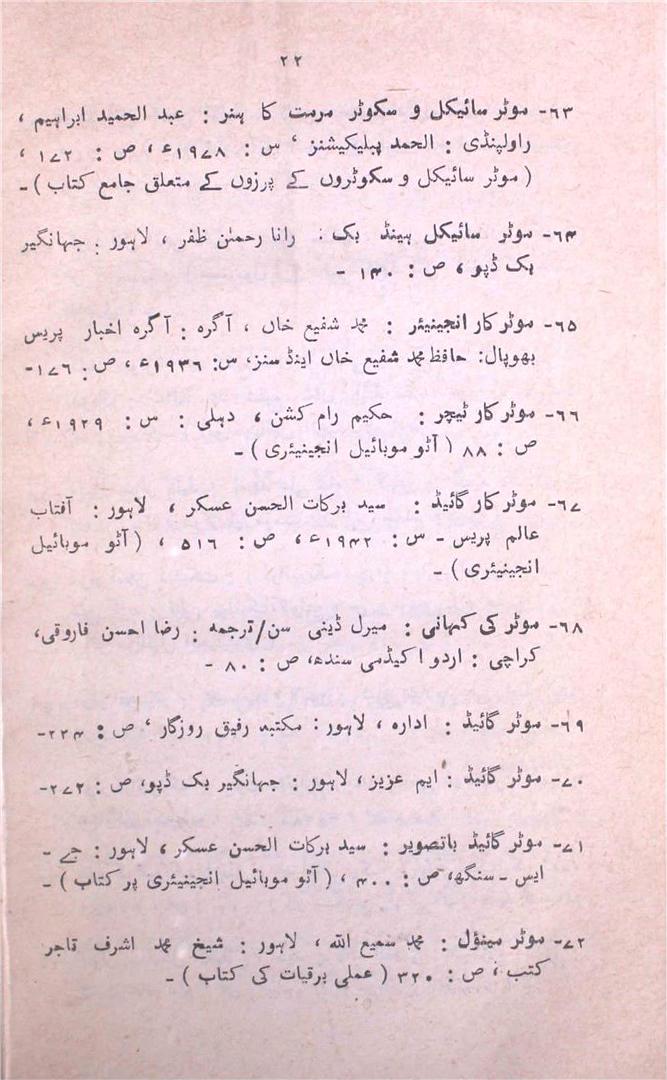 ۲۲
۶۳- موٹر سائیکل و سکوٹر مرمت کا ہنر : عبد الحمید ابراہیم ،
راولپنڈی : الحمد پبلیکیشنز ، س : ۱۹۷۸ء ، ص : ۱۷۲ ،
( موٹر سائیکل و سکوٹروں کے پرزوں کے متعلق جامع کتاب ) -
۶۴- موٹر سائیکل ہینڈ بک : رانا رحمٰن ظفر ، لاہور : جہانگیر
بک ڈپو ، ص : ۱۴۰ -
۶۵- موٹر کار انجینیئر : محمد شفیع خاں ، آگرہ : آگرہ اخبار پریس
بھوپال: حافظ محمد شفیع خاں اینڈ سنز، س: ۱۹۳۶ء ، ص : ۱۷۶-
۶۶- موٹر کار ٹیچر : حکیم رام کشن ، دہلی : س : ۱۹۲۹ء ،
ص : ۸۸ ( آٹو موبائیل انجینیئری ) -
۶۷- موٹر کار گائیڈ : سید برکات الحسن عسکر ، لاہور : آفتاب
عالم پریس - س : ۱۹۴۲ء ، ص : ۵۱۶ ، ( آٹو موبائیل
انجینیئری ) -
۶۸- موٹر کی کہانی : میرل ڈینی سن/ترجمہ : رضا احسن فاروقی،
کراچی : اردو اکیڈمی سندھ، ص : ۸۰ -
۶۹- موٹر گائیڈ : ادارہ ، لاہور : مکتبہ رفیق روزگار ، ص : ۲۳۴-
۷۰- موٹر گائیڈ : ایم عزیز ، لاہور : جہانگیر بک ڈپو، ص : ۲۷۲-
۷۱- موٹر گائیڈ باتصویر : سید برکات الحسن عسکر ، لاہور : جے -
ایس - سنگھ، ص : ۴۰۰ ، ( آٹو موبائیل انجینیئری پر کتاب ) -
۷۲- موٹر مینؤل : محمد سمیع اللہ ، لاہور : شیخ محمد اشرف تاجر
کتب ، ص : ۳۲۰ ( عملی برقیات کی کتاب ) -